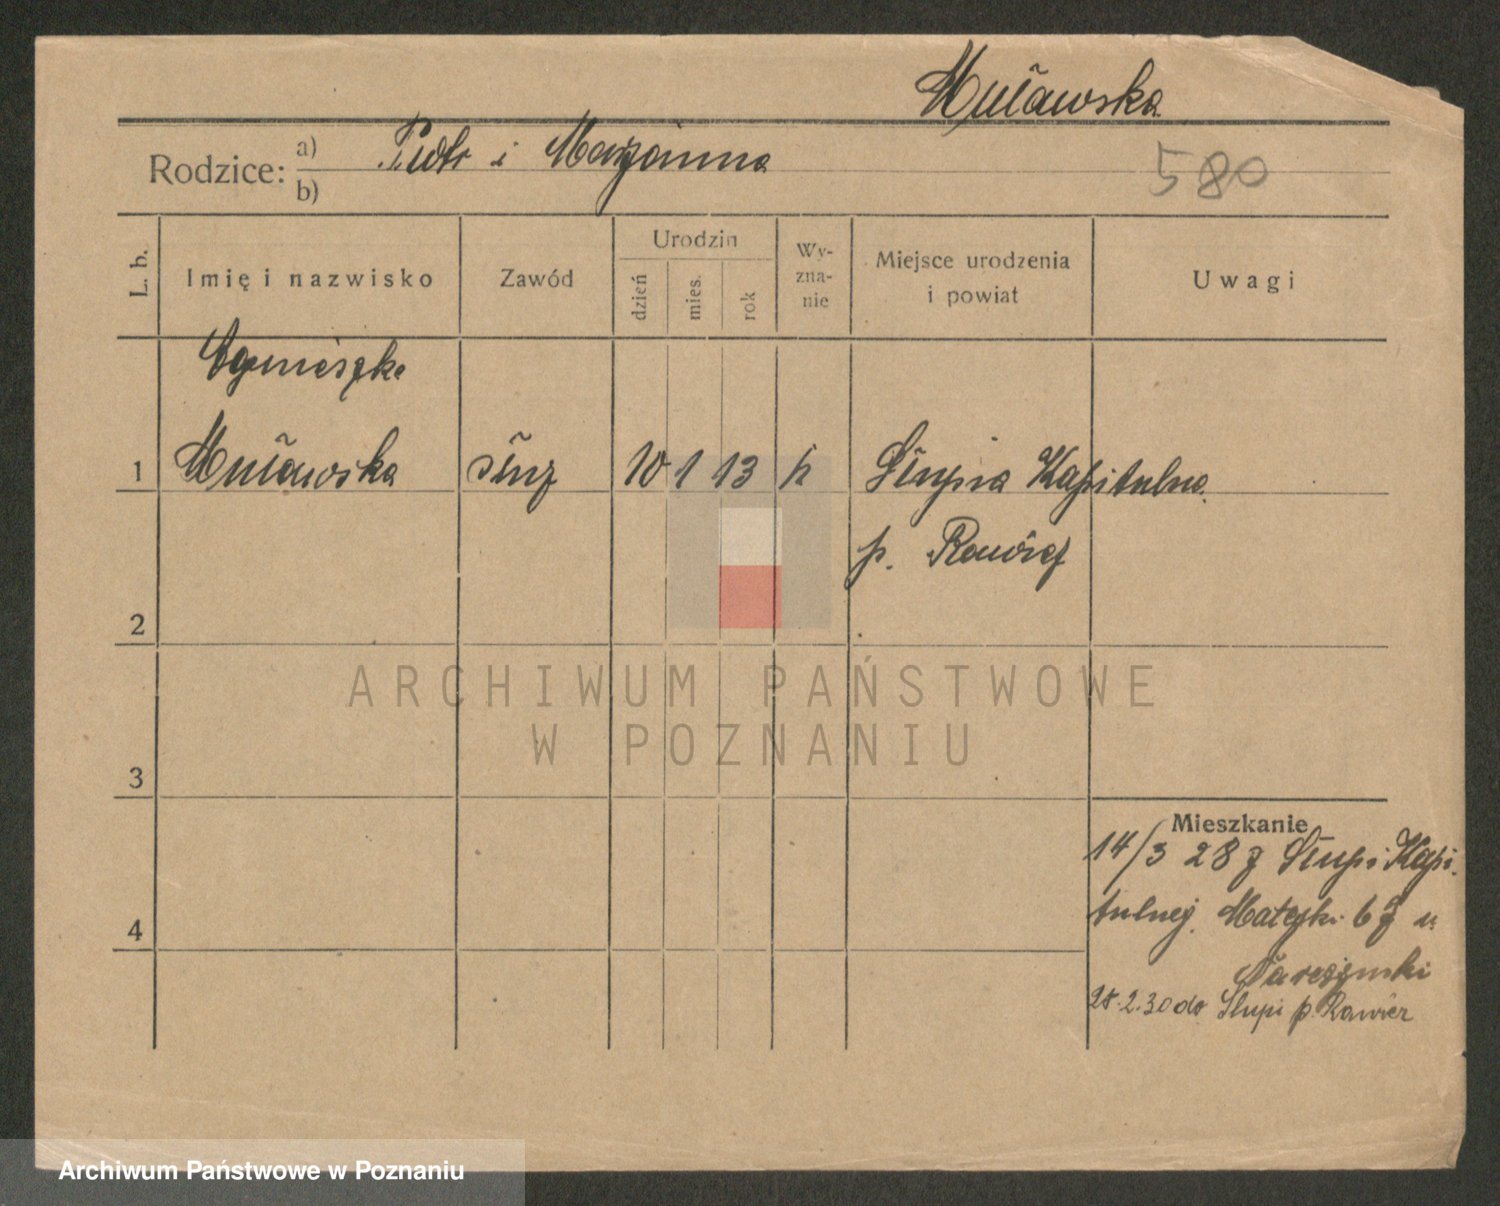 Mulawska
Rodzice: a) Piotr i Marjanna
b)
580
L. b.
Imię i nazwisko
Zawód
Urodzin
dzień
mies.
rok
Wy-
zna-
nie
Miejsce urodzenia
i powiat
Uwagi
Agnieszka
1 Mulawska służ 10 1 13 k Słupia Kapitulna
p. Rawicz
2
3
4
ARCHIWUM PAŃSTWOWE
W POZNANIU
Mieszkanie
14/3 28 z Słupi Kapi
tulnej. Matejki 6 u
28.2.30 do Słupi p. Rawicz
Archiwum Państwowe w Poznaniu